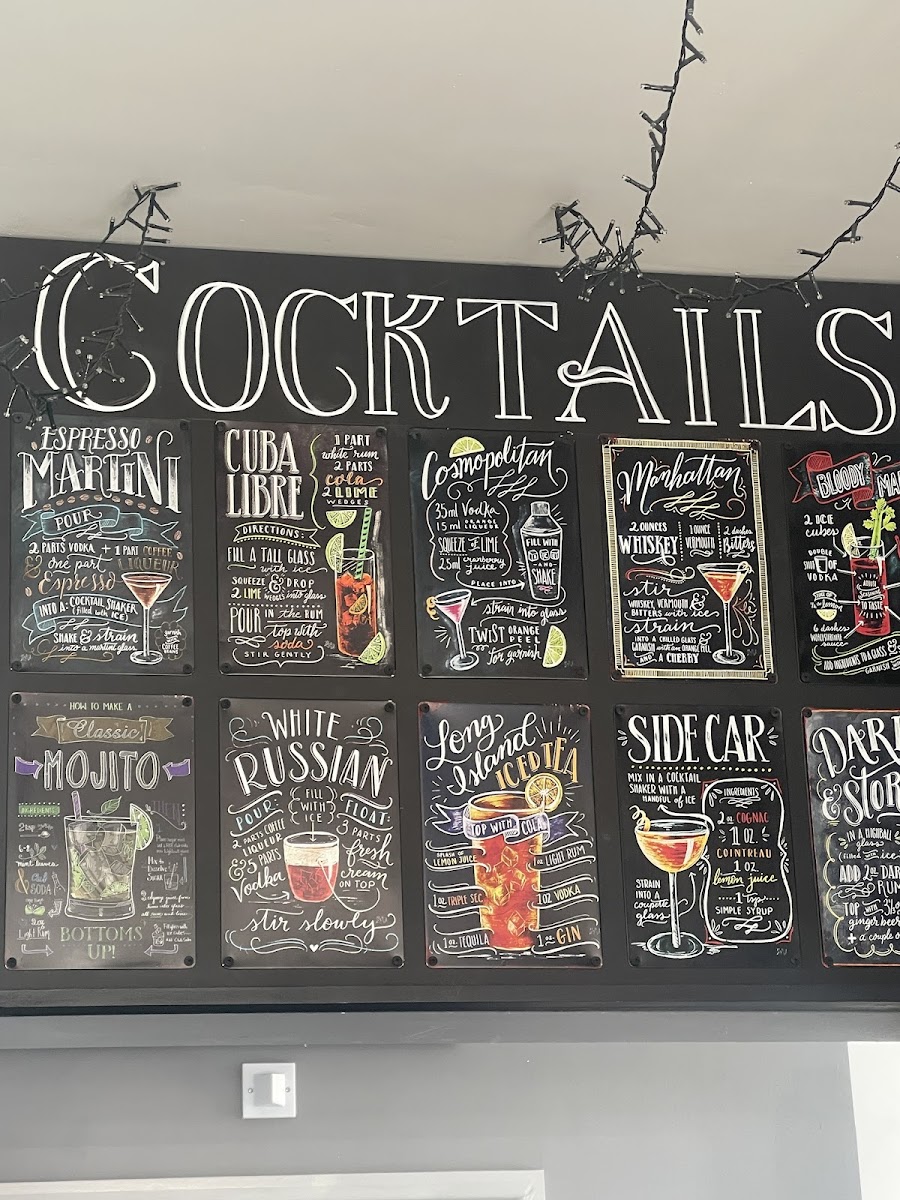 COCKTAILS
ESPRESSO
MARTINI
POUR
2 PARTS VODKA + 1 PART COFFEE
LIQUEUR
& one part
Espresso
INTO A COCKTAIL SHAKER
(filled with ICE)
SHAKE & strain
into a martini glass
garnish
COFFEE
CUBA
LIBRE
1 PART
white rum
2 PARTS
cola
2 LIME
WEDGES
DIRECTIONS:
FILL A TALL GLASS
with ice
SQUEEZE & DROP
2 LIME WEDGES into glass
POUR in the RUM
top with
soda
STIR GENTLY
Cosmopolitan
35ml Vodka
15ml ORANGE
LIQUEUR
SQUEEZE OF LIME
25ml cranberry
juice
FILL WITH
ICE
AND
SHAKE
PLACE INTO
strain into glass
TWIST ORANGE
PEEL
for garnish
Manhattan
2 OUNCES
WHISKEY
1 OUNCE
VERMOUTH
2 dashes
Bitters
stir
WHISKEY, VERMOUTH &
BITTERS with ice
strain
INTO A CHILLED GLASS &
GARNISH with an ORANGE PEEL
AND A CHERRY
BLOODY MA
2 ICE
cubes
DOUBLE
SHOT OF
VODKA
6 dashes
WORCESTERSHIRE
sauce
SEASONING
TO TASTE
ADD INGREDIENTS TO A GLASS &
GARNISH
HOW TO MAKE A
Classic
MOJITO
INGREDIENTS
2 tsp
6-8
mint leaves
Club
SODA
2 oz
Light Rum
THEN
BOTTOMS
UP!
WHITE
RUSSIAN
FILL
WITH
ICE
POUR:
2 PARTS COFFEE
LIQUEUR
& 5 PARTS
Vodka
FLOAT:
3 PARTS
fresh
cream
ON TOP
stir slowly
Long
Island
ICED TEA
TOP WITH COLA
SPLASH OF
LEMON JUICE
1 oz LIGHT RUM
1 oz TRIPLE SEC
1 oz VODKA
1 oz TEQUILA
1 oz GIN
SIDE CAR
MIX IN A COCKTAIL
SHAKER WITH A
HANDFUL of ICE
INGREDIENTS
2 oz COGNAC
1 OZ.
COINTREAU
1 OZ.
lemon juice
1 tsp
SIMPLE SYRUP
STRAIN
INTO a
coupette
glass
DAR
& STOR
IN A HIGHBALL
glass
filled with ice
ADD 2oz DAR
RUM
TOP WITH 3½ o
ginger beer
+ a couple o